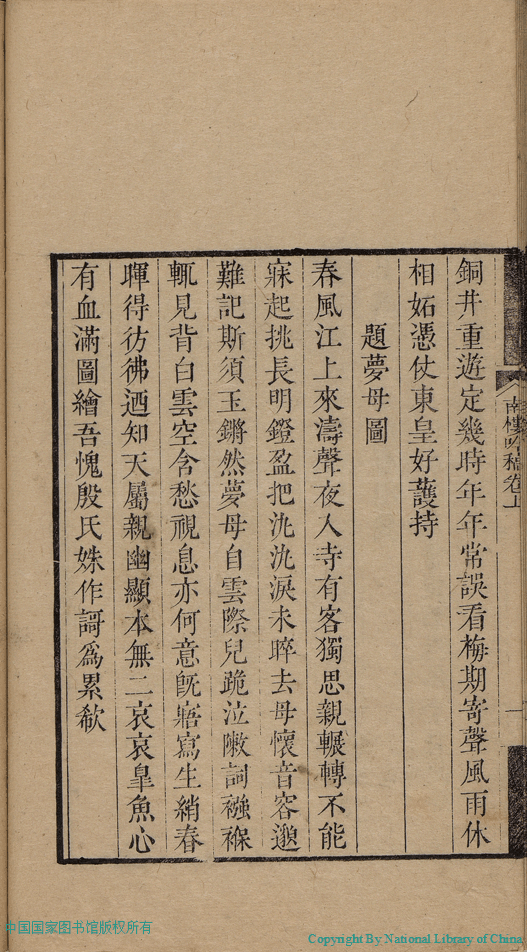 南樓吟稿卷上
一
銅井重遊定幾時年年常誤看梅期寄聲風雨休
相妬憑仗東皇好護持
題夢母圖
春風江上來濤聲夜入寺有客獨思親輾轉不能
寐起挑長明鐙盈把氿氿淚未晬去母懷音容邈
難記斯須玉鏘然夢母自雲際兒跪泣陳詞襁褓
輒見背白雲空含愁視息亦何意旣寤寫生綃春
暉得彷彿迺知天屬親幽顯本無二哀哀臯魚心
有血滿圖繪吾愧殷氏姝作謌爲累欷
中国国家图书馆版权所有
Copyright By National Library of China